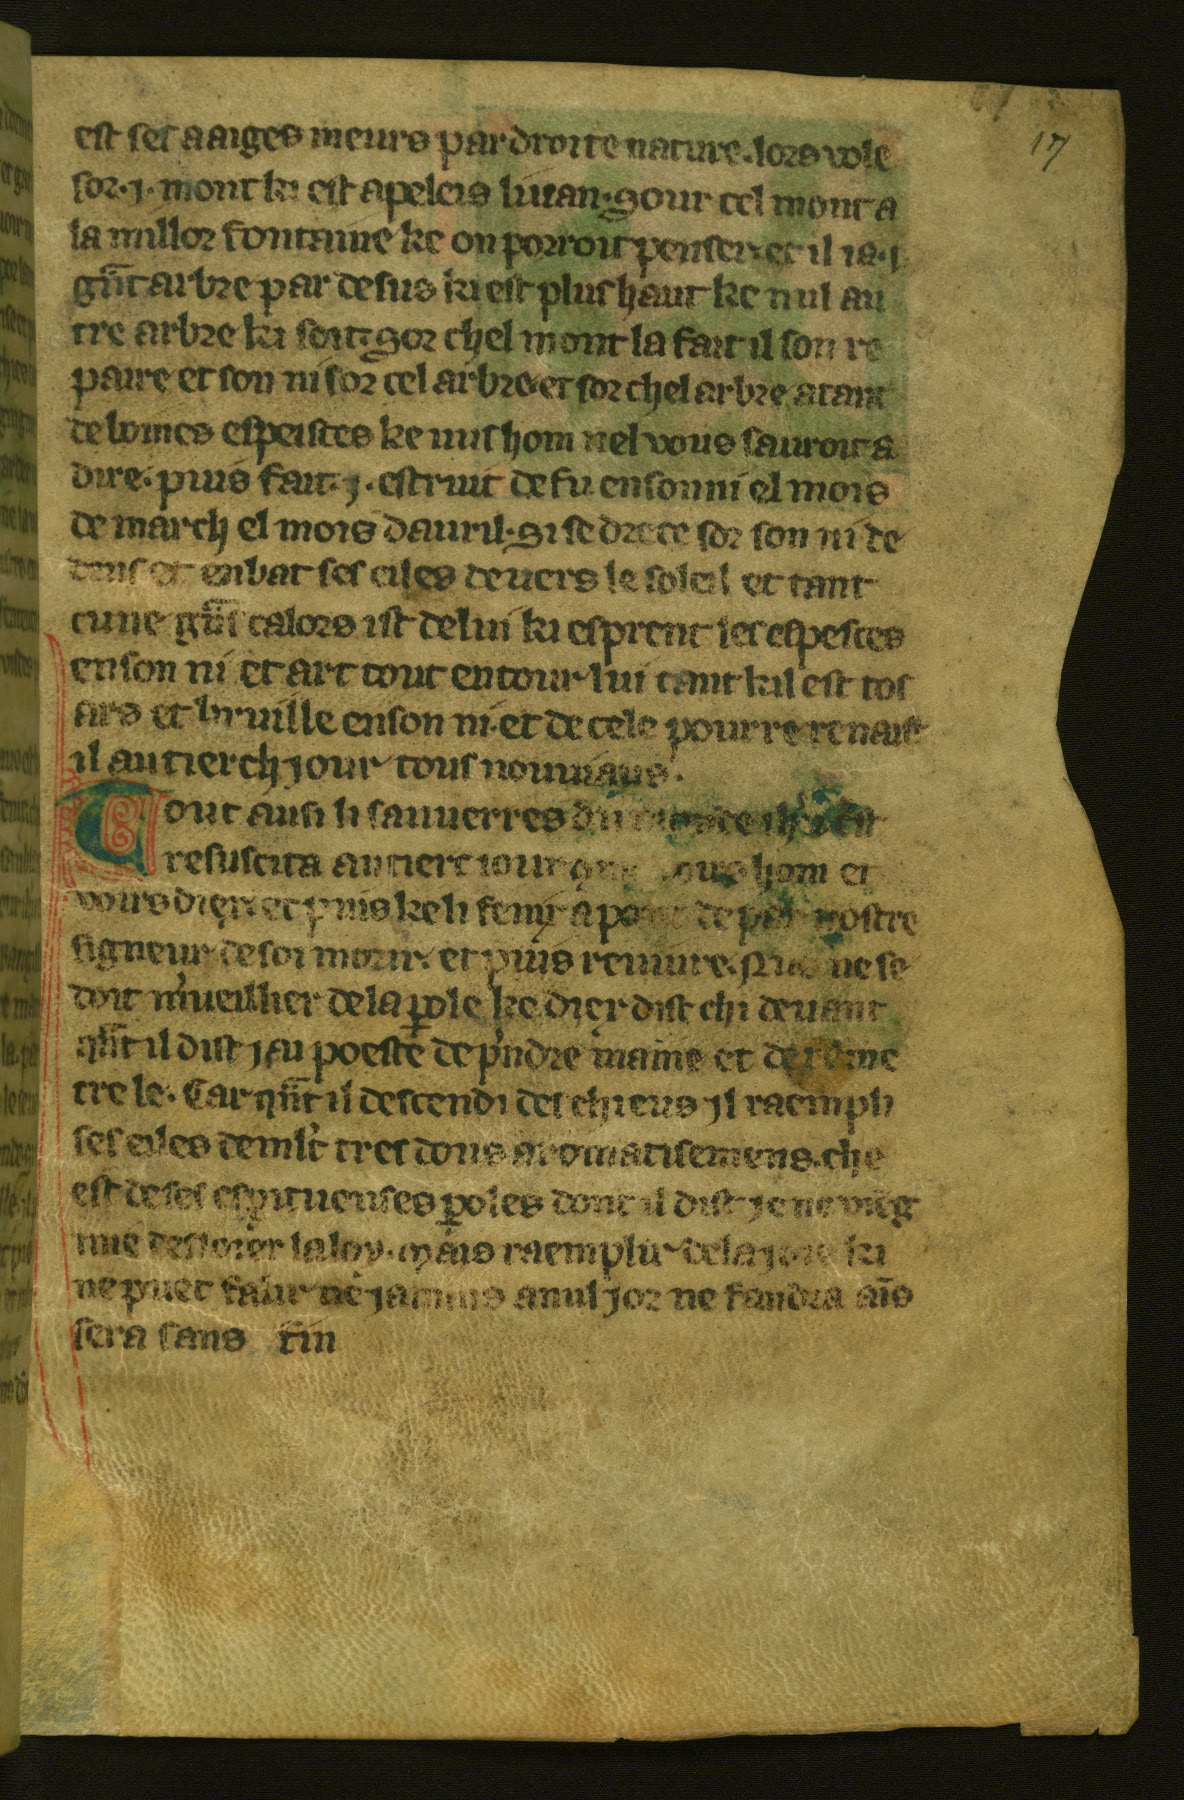 17
est ses aaiges meurs par droite nature. lors vole
sor .j. mont ki est apeleis liuan. Sour cel mont a
la millor fontaine ke on porroit penser. et il ia .j.
gn̄t arbre par desus ki est plus haut ke nul au
tre arbre ki soit. Sor chel mont la fait il son re
paire et son ni sor cel arbre. et sor chel arbre a tant
de bones espeisces ke nus hom nel vous sauroit a
dire. puis fait .j. estruit de fu en son ni el mois
de march el mois dauril. Si se drece sor son ni de
dens et enbat ses eiles deuers le soleil et tant
cune gn̄s calors ist de lui ki esprent les espesces
en son ni et art tout entour lui tant kil est tos
ars et bruille en son ni. et de cele pourre renaist
il au tierch jour tous nouuiaus.
Tout ausi li sauuerres du monde
resuscita au tierc iour hom et
vours diex. et puis ke li fenix a de par nostre
signeur de soi morir. et puis reuiure. Nus ne se
doit m'ueillier de la ꝑole ke diex dist chi deuant
qn̄t il dist j au poeste de p'ndre maine et de reme
tre le. Car qn̄t il descendi des chieus jl raempli
ses eiles de ml't tres dous aromatisemens. che
est de ses esꝑituenses ꝑoles dont il dist je ne ving
mie desloier la loy. mais raemplir de la joie ki
ne puet falir ne jamais a nul jor ne faudra ais̄
sera sans fin